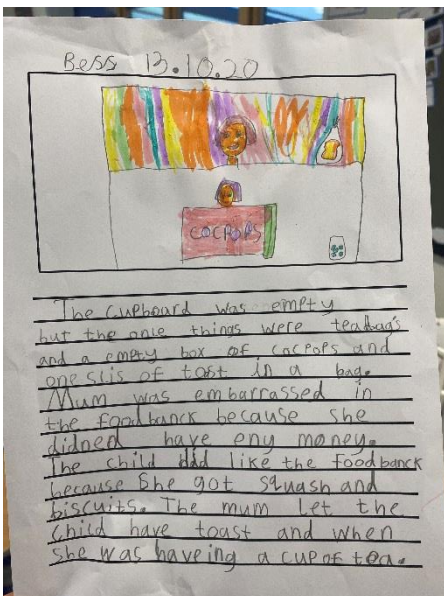 Bess 13.10.20
COCPOPS
The cupboard was empty
but the onle things were teabags
and a empty box of cocpops and
one slis of tost in a bag.
Mum was embarrassed in
the foodbanck because she
didned have eny money.
The child did like the foodbanck
because she got squash and
biscuits. The mum let the
child have toast and when
she was haveing a cup of tea.